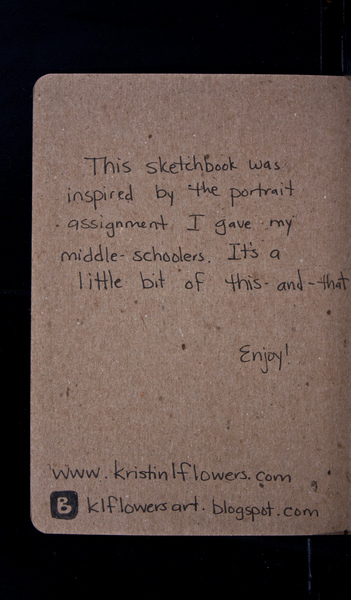 This sketchbook was
inspired by the portrait
assignment I gave my
middle-schoolers. It's a
little bit of this-and-that
Enjoy!
www.kristinlflowers.com
B klflowersart.blogspot.com